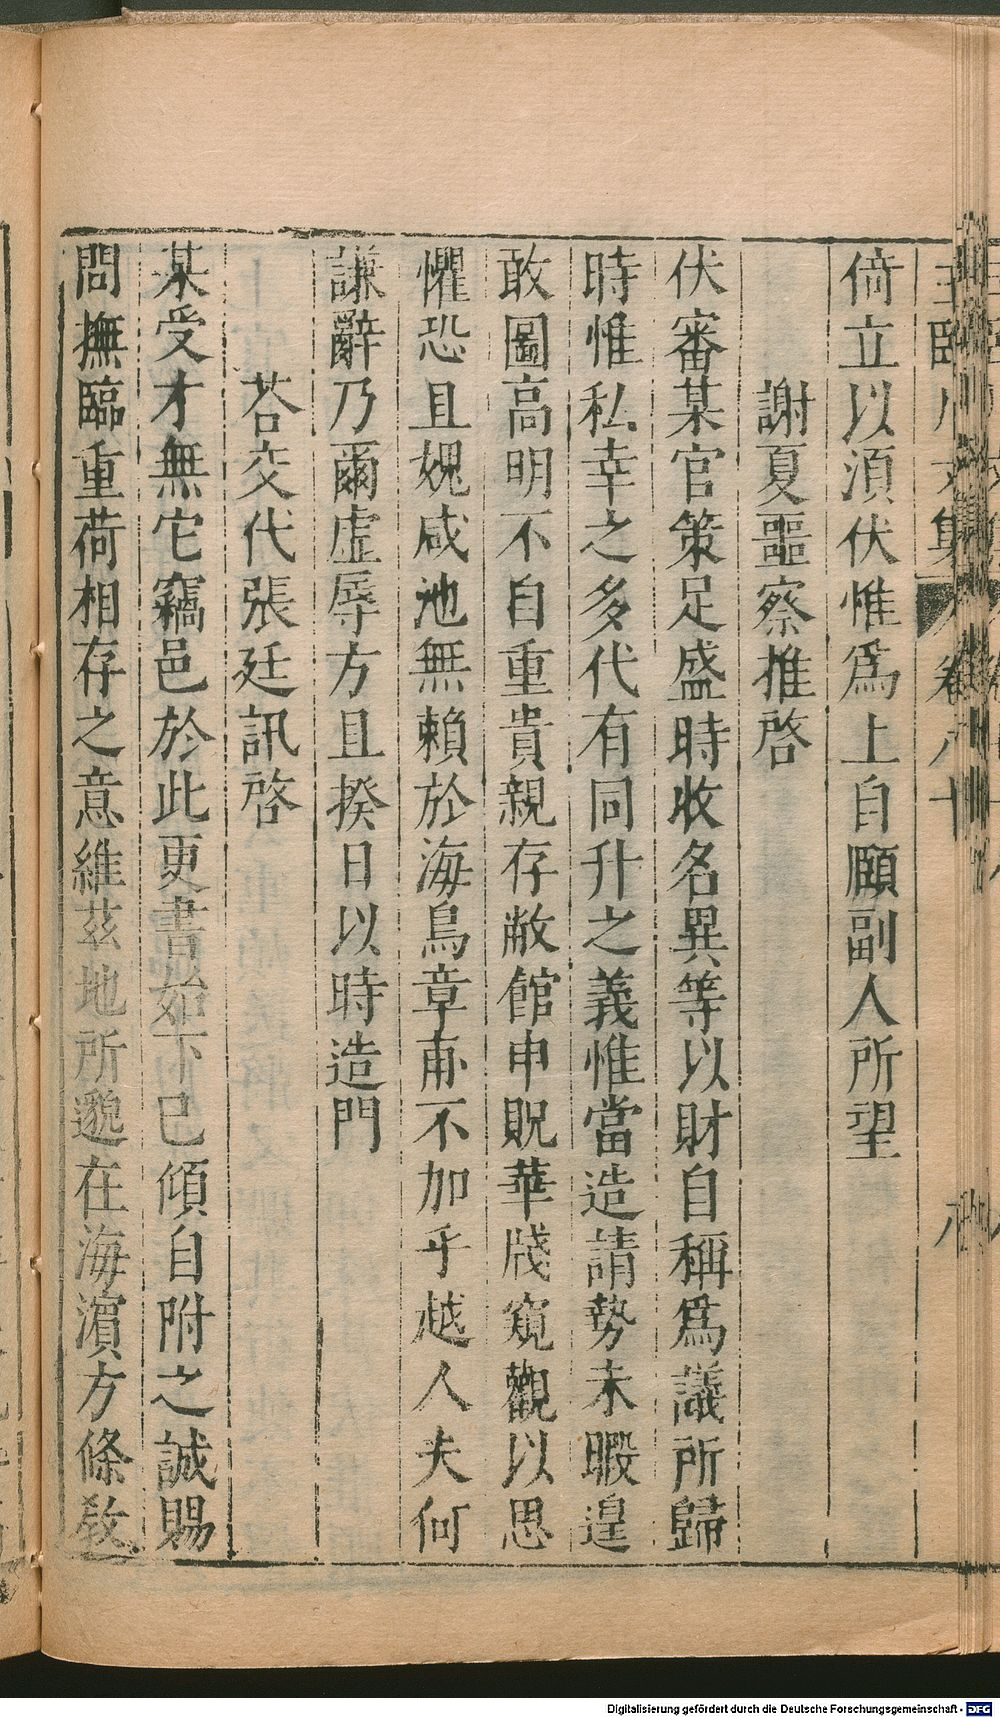 倚立以須伏惟爲上自頤副人所望
謝夏噩察推啓
伏審某官策足盛時收名異等以財自稱爲議所歸
時惟私幸之多代有同升之義惟當造請勢未暇遑
敢圖高明不自重貴親存敝館申貺華牋窺觀以思
懼恐且媿咸池無賴於海鳥章甫不加乎越人夫何
謙辭乃爾虛辱方且揆日以時造門
荅交代張廷訊啓
某受才無它竊邑於此更書始下已傾自附之誠賜
問撫臨重荷相存之意維茲地所邈在海濵方條敎
Digitalisierung gefördert durch die Deutsche Forschungsgemeinschaft - DFG